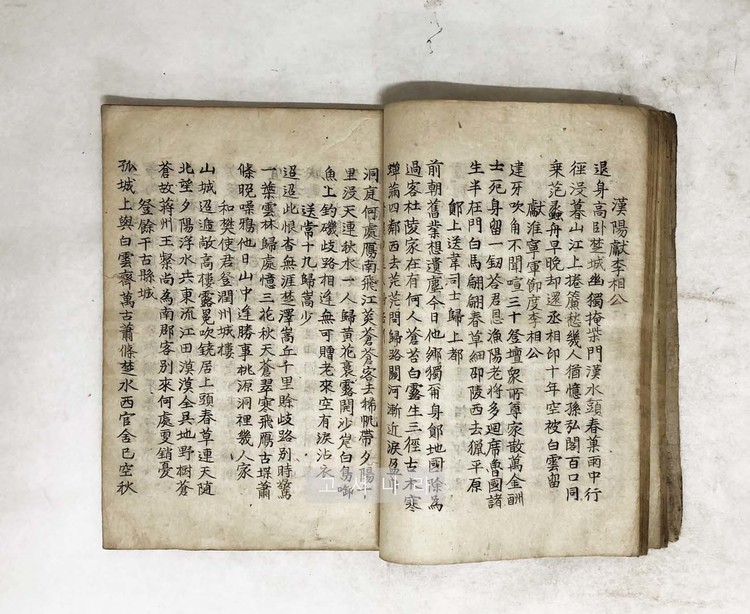 漢陽獻李相公
退身高臥楚城幽獨掩柴門漢水頭春草雨中行
徑没暮山江上捲簾愁幾人猶憶孫弘閣百口同
乗范蠡舟早晚却還丞相印十年空被白雲留
獻淮寧軍節度李相公
建牙吹角不聞喧三十登壇衆所尊家散萬金酬
士死身留一釰答君恩漁陽老將多廻席魯國諸
生半在門白馬翩翩春草細邵陵西去獵平原
鄖上送韋司士歸上都
前朝舊業想遺塵今日他鄉獨爾身鄖地國除為
過客杜陵家在有何人蒼苔白露生三徑古木寒
蟬滿四鄰西去茫茫問歸路關河漸近淚
洞庭何處鴈南飛江菼蒼蒼客去稀帆帶夕陽千
里浸天連秋水一人歸黃花裛露開沙岸白鳥啣
魚上釣磯歧路相逢無可贈老來空有淚沾衣
送常十九歸嵩少
迢迢此恨杳無涯楚澤嵩丘千里賒歧路別時驚
一葉雲林歸處憶三花秋天蒼翠寒飛鴈古堞蕭
條晚噪鴉他日山中逢勝事桃源洞裡幾人家
和樊使君登潤州城樓
山城迢遰敞高樓露冕吹鐃居上頭春草連天隨
北望夕陽浮水共東流江田漠漠全吳地野樹蒼
蒼故蔣州王粲尚為南郡客別來何處更銷憂
登餘干古縣城
孤城上與白雲齊萬古蕭條楚水西官舍已空秋